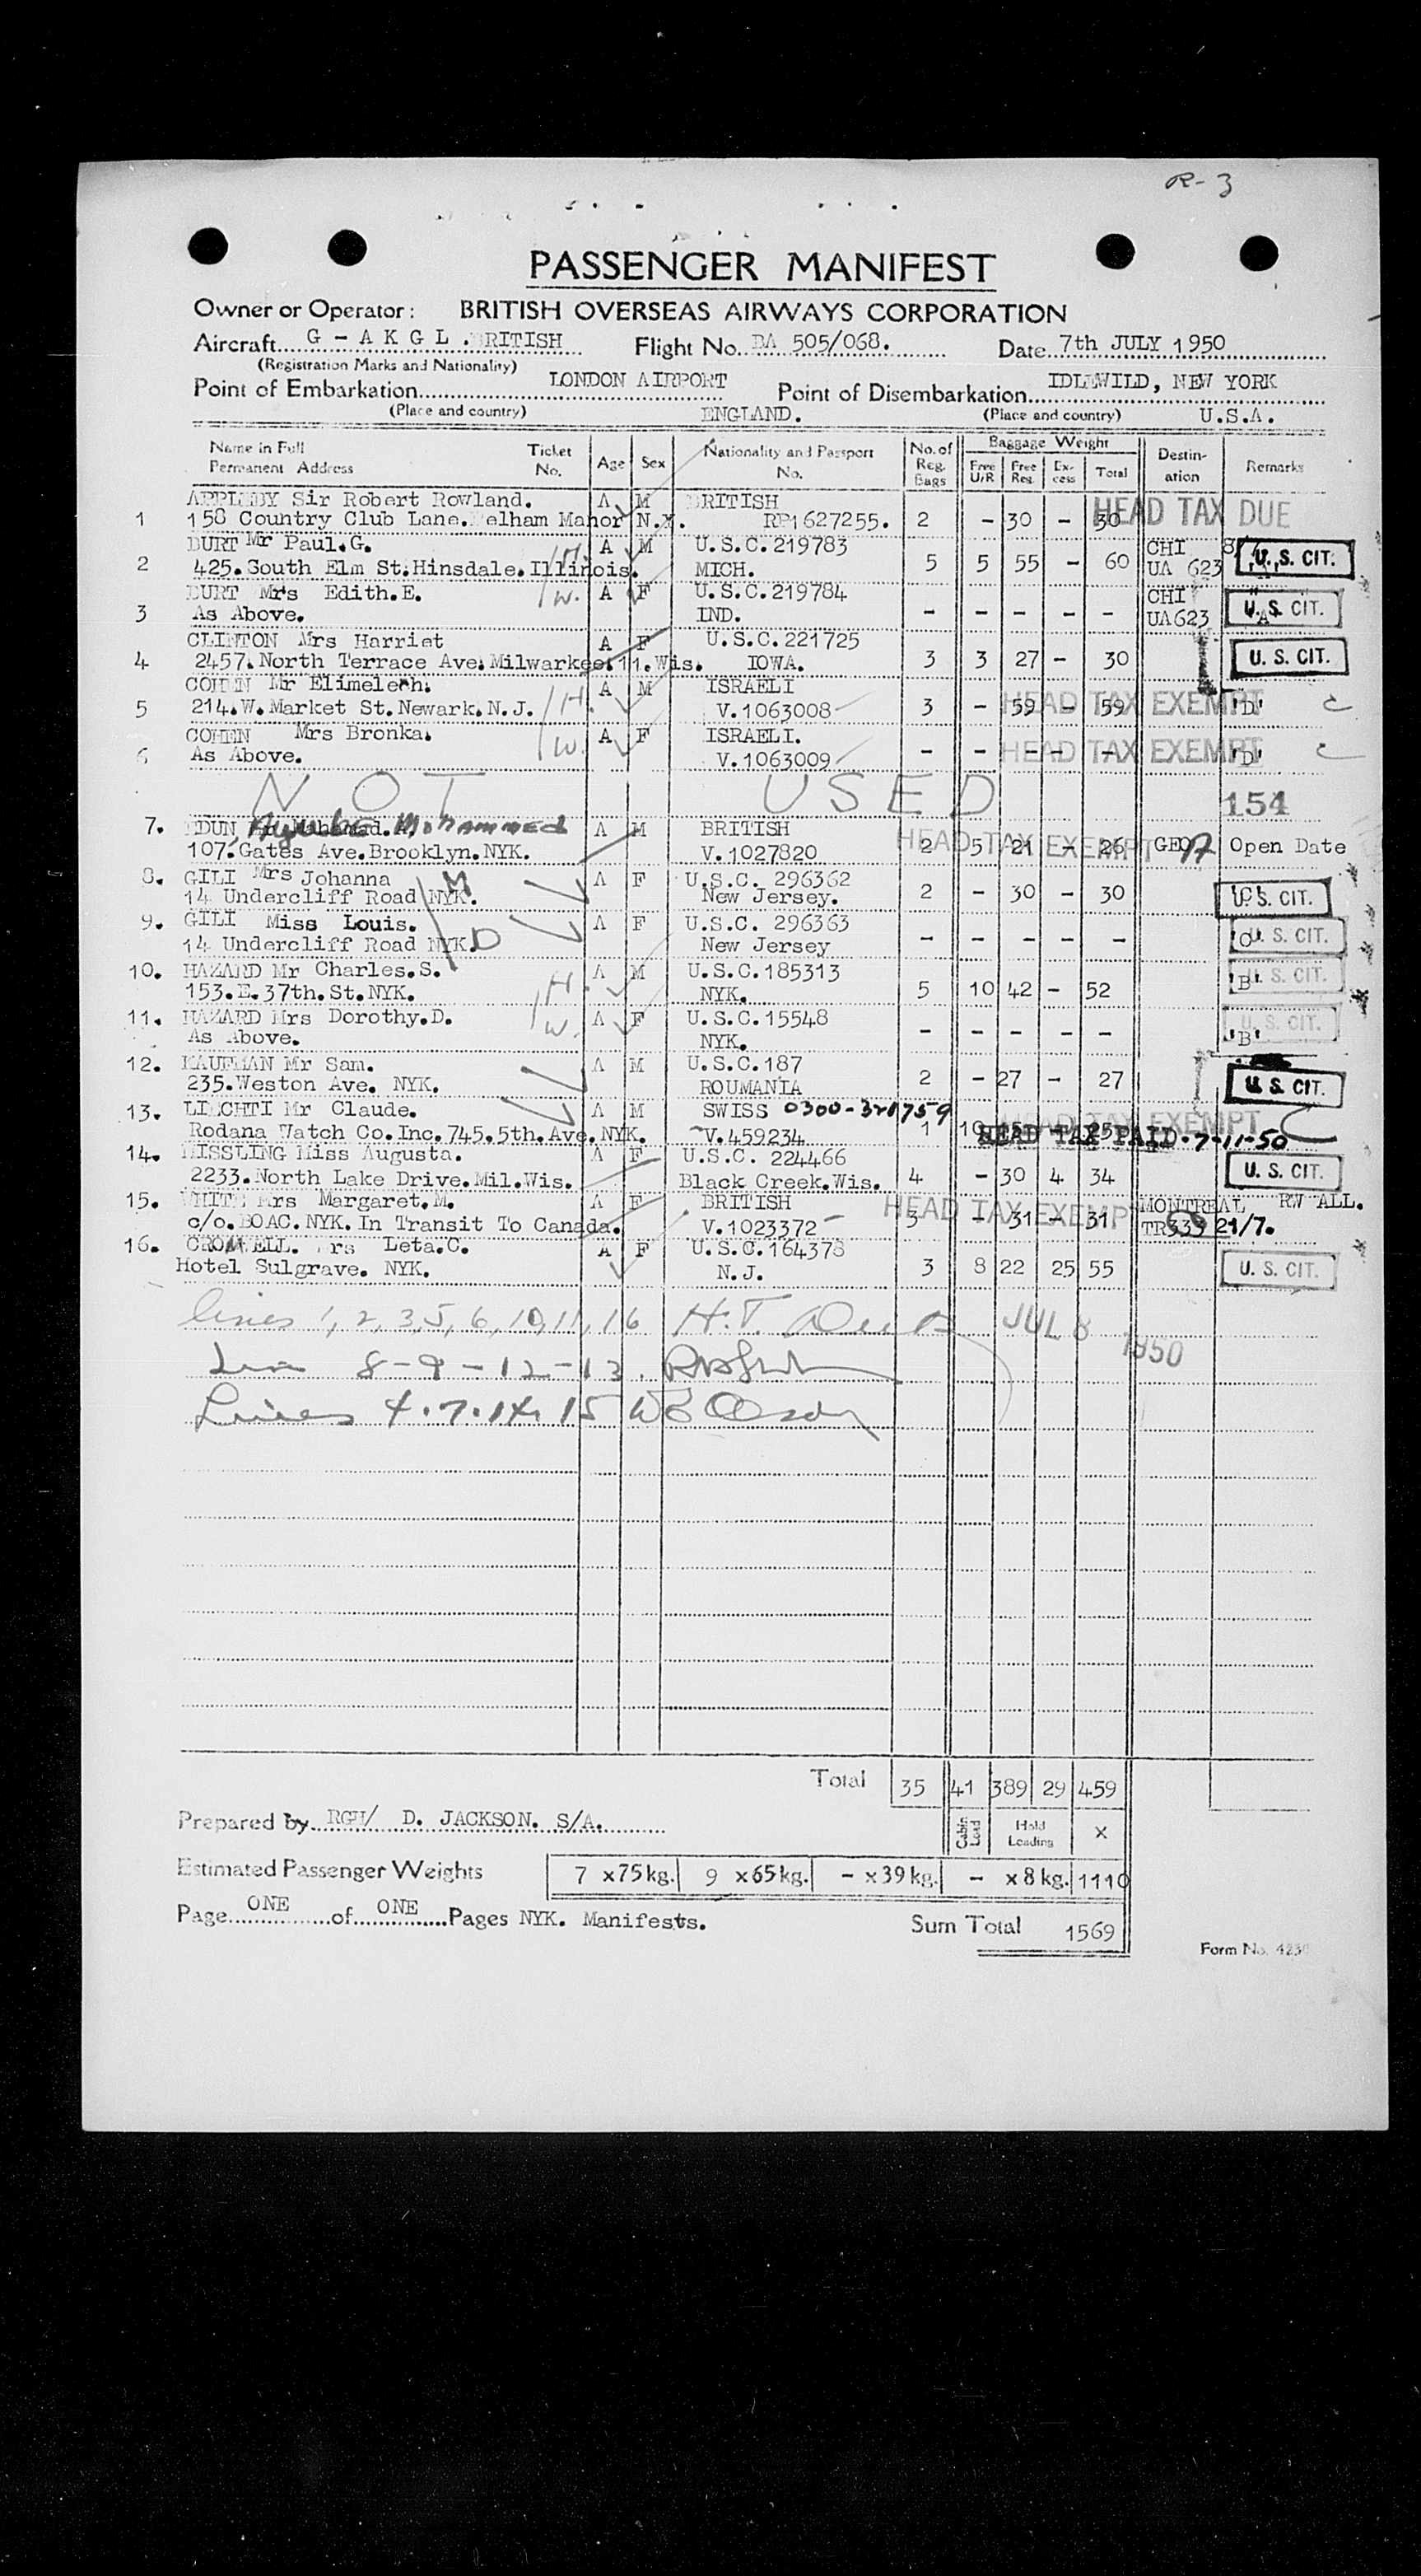 R-3
PASSENGER MANIFEST
Owner or Operator: BRITISH OVERSEAS AIRWAYS CORPORATION
Aircraft G - A K G L . BRITISH Flight No. BA 505/068. Date 7th JULY 1950
(Registration Marks and Nationality)
Point of Embarkation LONDON AIRPORT Point of Disembarkation IDLEWILD, NEW YORK
(Place and country) ENGLAND. (Place and country) U.S.A.
Name in Full Ticket Age Sex Nationality and Passport No. of Baggage Weight Destin- Remarks
Permanent Address No. No. Reg. Bags Free U/R Free Reg. Ex-cess Total ation
APPLEBY Sir Robert Rowland. A M BRITISH HEAD TAX DUE
1 158 Country Club Lane. Pelham Manor N.Y. RP1627255. 2 - 30 - 30
BURT Mr Paul.G. H. A M U.S.C.219783 CHI
2 425.South Elm St.Hinsdale.Illinois. MICH. 5 5 55 - 60 UA 623 U. S. CIT.
BURT Mrs Edith.E. W. A F U.S.C.219784 CHI
3 As Above. IND. - - - - - UA623 U. S. CIT.
CLINTON Mrs Harriet A F U.S.C.221725
4 2457.North Terrace Ave.Milwarkee.11.Wis. IOWA. 3 3 27 - 30 U. S. CIT.
COHEN Mr Elimelech. H. A M ISRAELI HEAD TAX EXEMPT
5 214.W.Market St.Newark.N.J. V.1063008 3 - 59 - 59 'D' C
COHEN Mrs Bronka. W. A F ISRAELI. HEAD TAX EXEMPT
6 As Above. V.1063009 - - - - - 'D' C
NOT USED 154
7. EDUN Mohammed A M BRITISH HEAD TAX EXEMPT
107.Gates Ave.Brooklyn.NYK. V.1027820 2 5 21 - 26 GEO Open Date
8. GILI Mrs Johanna M A F U.S.C. 296362
14 Undercliff Road NYK. New Jersey. 2 - 30 - 30 'C' U. S. CIT.
9. GILI Miss Louis. A F U.S.C. 296363
14 Undercliff Road NYK. D New Jersey - - - - - 'C' U. S. CIT.
10. HAZARD Mr Charles.S. H. A M U.S.C.185313
153.E.37th.St.NYK. NYK. 5 10 42 - 52 'B' U. S. CIT.
11. HAZARD Mrs Dorothy.D. W. A F U.S.C.15548
As Above. NYK. - - - - - 'B' U. S. CIT.
12. KAUFMAN Mr Sam. A M U.S.C.187
235.Weston Ave. NYK. ROUMANIA 2 - 27 - 27 U. S. CIT.
13. LIECHTI Mr Claude. A M SWISS 0300-321759 HEAD TAX EXEMPT C
Rodana Watch Co.Inc.745.5th.Ave.NYK. V.459234 1 10 HEAD TAX PAID. 7-11-50
14. Miss Augusta. A F U.S.C. 224466
2233.North Lake Drive.Mil.Wis. Black Creek.Wis. 4 - 30 4 34 U. S. CIT.
15. WHITE Mrs Margaret.M. A F BRITISH HEAD TAX EXEMPT MONTREAL RW ALL.
c/o.BOAC.NYK.In Transit To Canada. V.1023372 3 - 31 - 31 TR333 21/7.
16. CROMWELL. Mrs Leta.C. A F U.S.C.164378
Hotel Sulgrave. NYK. N.J. 3 8 22 25 55 U. S. CIT.
lines 1, 2, 3, 5, 6, 10, 11, 16 H.T. JUL 8 1950
8-9-12-13.
Lines 4.7.14.15
Total 35 41 389 29 459
Prepared by RGH/ D. JACKSON. S/A. Cabin Load Hold Loading X
Estimated Passenger Weights 7 x75kg. 9 x65kg. - x39kg. - x8kg. 1110
Page ONE of ONE Pages NYK. Manifests. Sum Total 1569
Form No.